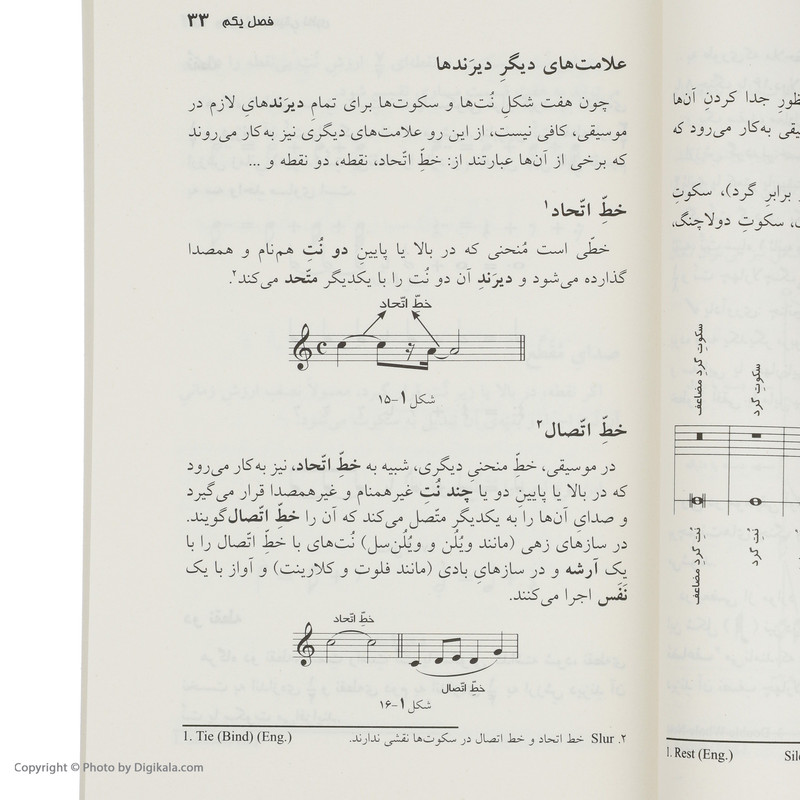 فصل یکم ۳۳
علامت‌های دیگرِ دیرَندها
چون هفت شکلِ نُت‌ها و سکوت‌ها برای تمامِ دیرَندهایِ لازم در
موسیقی، کافی نیست، از این رو علامت‌های دیگری نیز به‌کار می‌روند
که برخی از آن‌ها عبارتند از: خطِّ اتّحاد، نقطه، دو نقطه و ...
خطِّ اتّحاد۱
خطّی است مُنحنی که در بالا یا پایینِ دو نُتِ هم‌نام و همصدا
گذارده می‌شود و دیرَندِ آن دو نُت را با یکدیگر متّحد می‌کند۲.
خطِّ اتّحاد
شکل ۱-۱۵
خطِّ اتّصال۲
در موسیقی، خطِّ منحنیِ دیگری، شبیه به خطِّ اتّحاد، نیز به‌کار می‌رود
که در بالا یا پایینِ دو یا چند نُتِ غیرهمنام و غیرهمصدا قرار می‌گیرد
و صدایِ آن‌ها را به یکدیگر متّصل می‌کند که آن را خطِّ اتّصال گویند.
در سازهای زهی (مانند ویُلُن و ویُلُن‌سل) نُت‌های با خطِّ اتّصال را با
یک آرشه و در سازهایِ بادی (مانند فلوت و کلارینت) و آواز با یک
نَفَس اجرا می‌کنند.
خطِّ اتحاد
خطِّ اتّصال
شکل ۱-۱۶
1. Tie (Bind) (Eng.)
۲. Slur خط اتحاد و خط اتصال در سکوت‌ها نقشی ندارند.
ظورِ جدا کردنِ آن‌ها
یقی به‌کار می‌رود که
برابرِ گرد)، سکوتِ
سکوتِ دولاچنگ،
سکوتِ گردِ مضاعف
سکوتِ گرد
نُت گردِ مضاعف
نُتِ گرد
1. Rest (Eng.)
Copyright © Photo by Digikala.com